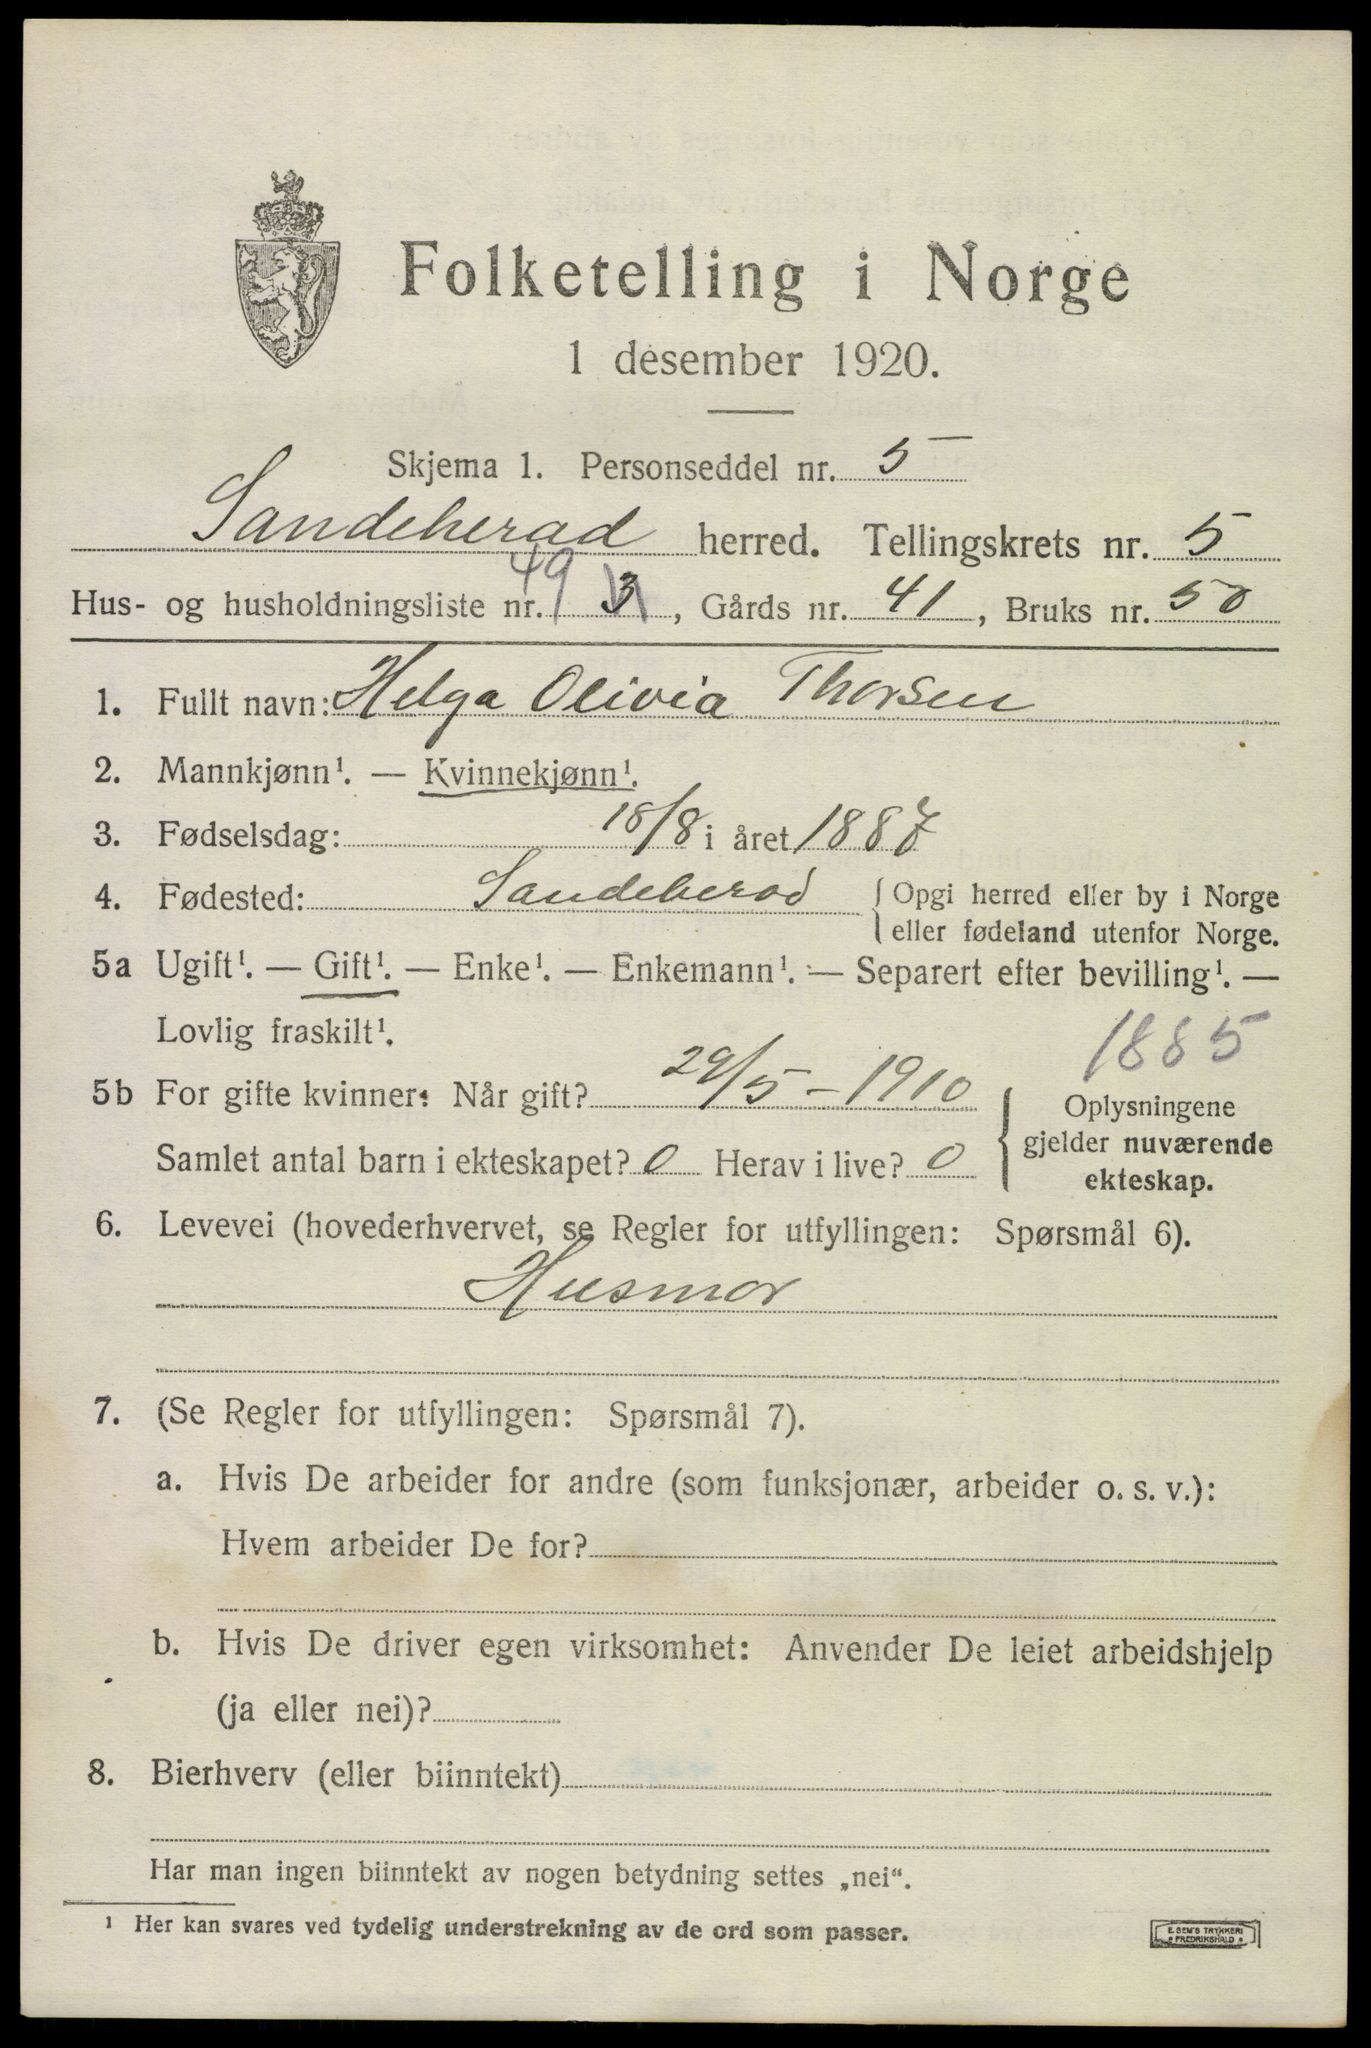 Folketelling i Norge
1 desember 1920.
Skjema 1. Personseddel nr. 5
Sandeherad herred. Tellingskrets nr. 5
Hus- og husholdningsliste nr. 49 3, Gårds nr. 41, Bruks nr. 50
1. Fullt navn: Helga Olivia Thorsen
2. Mannkjønn¹. — Kvinnekjønn¹.
3. Fødselsdag: 18/8 i året 1887
4. Fødested: Sandeherad { Opgi herred eller by i Norge
eller fødeland utenfor Norge.
5a Ugift¹. — Gift¹. — Enke¹. — Enkemann¹. — Separert efter bevilling¹. —
Lovlig fraskilt¹.
1885
5b For gifte kvinner: Når gift? 29/5 – 1910
Samlet antal barn i ekteskapet? 0 Herav i live? 0
{ Oplysningene
gjelder nuværende
ekteskap.
6. Levevei (hovederhvervet, se Regler for utfyllingen: Spørsmål 6).
Husmor
7. (Se Regler for utfyllingen: Spørsmål 7).
a. Hvis De arbeider for andre (som funksjonær, arbeider o. s. v.):
Hvem arbeider De for?
b. Hvis De driver egen virksomhet: Anvender De leiet arbeidshjelp
(ja eller nei)?
8. Bierhverv (eller biinntekt)
Har man ingen biinntekt av nogen betydning settes „nei“.
¹ Her kan svares ved tydelig understrekning av de ord som passer.
E. SEM'S TRYKKERI
FREDRIKSHALD